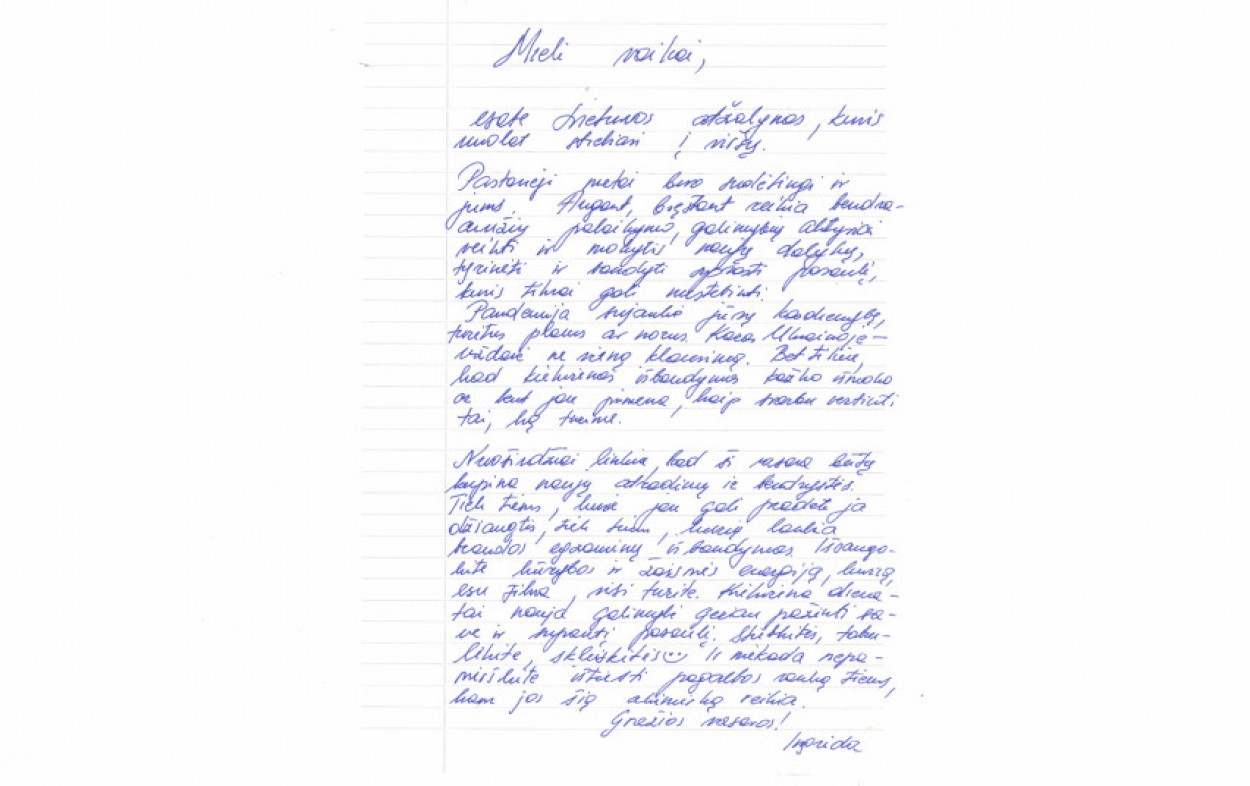 Mieli vaikai,
esate Lietuvos atžalynas, kuris
nuolat stiebiasi į viršų.
Pastarieji metai buvo sudėtingi ir
jums. Augant, bręstant reikia bendra-
amžių palaikymo, galimybių aktyviai
veikti ir mokytis naujų dalykų,
tyrinėti ir bandyti suprasti pasaulį,
kuris tikrai gali nustebinti.
Pandemija sujaukė jūsų kasdienybę,
turėtus planus ar norus. Karas Ukrainoje –
uždavė ne vieną klausimą. Bet tikiu,
kad kiekvienas išbandymas kažko išmoko
ar bent jau primena, kaip svarbu vertinti
tai, ką turime.
Nuoširdžiai linkiu, kad ši vasara būtų
kupina naujų atradimų ir bendrystės.
Tiek tiems, kurie jau gali pradėti ja
džiaugtis, tiek tiems, kurių laukia
brandos egzaminų išbandymas. Išsaugo-
kite kūrybos ir žaismės energiją, kurią,
esu tikra, visi turite. Kiekviena diena –
tai nauja galimybė geriau pažinti sa-
ve ir suprasti pasaulį. Stiebkitės, tobu-
lėkite, skleiskitės Ir niekada nepa-
mirškite ištiesti pagalbos ranką tiems,
kam jos šią akimirką reikia.
Gražios vasaros!
Ingrida